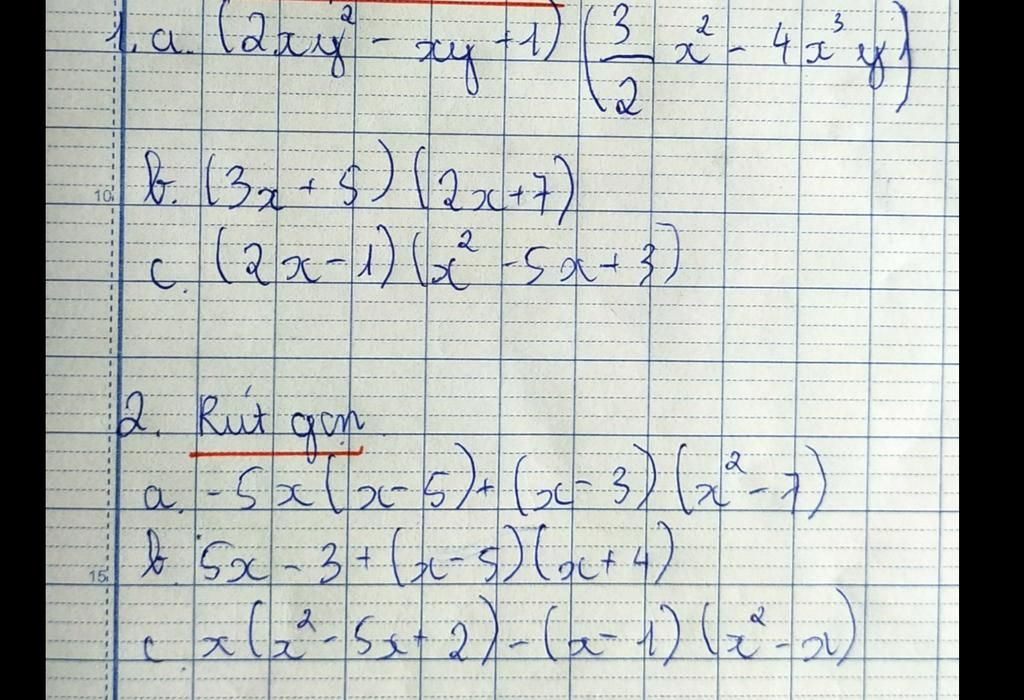 1. a. (2xy² - xy + 1) (3/2 x² - 4x³y)
b. (3x + 5) (2x + 7)
10
c. (2x - 1) (x² - 5x + 3)
2. Rút gọn
a. -5x (x - 5) + (x - 3) (x² - 7)
b. 5x - 3 + (x - 5) (x + 4)
15
c. x (x² - 5x + 2) - (x - 1) (x² - x)